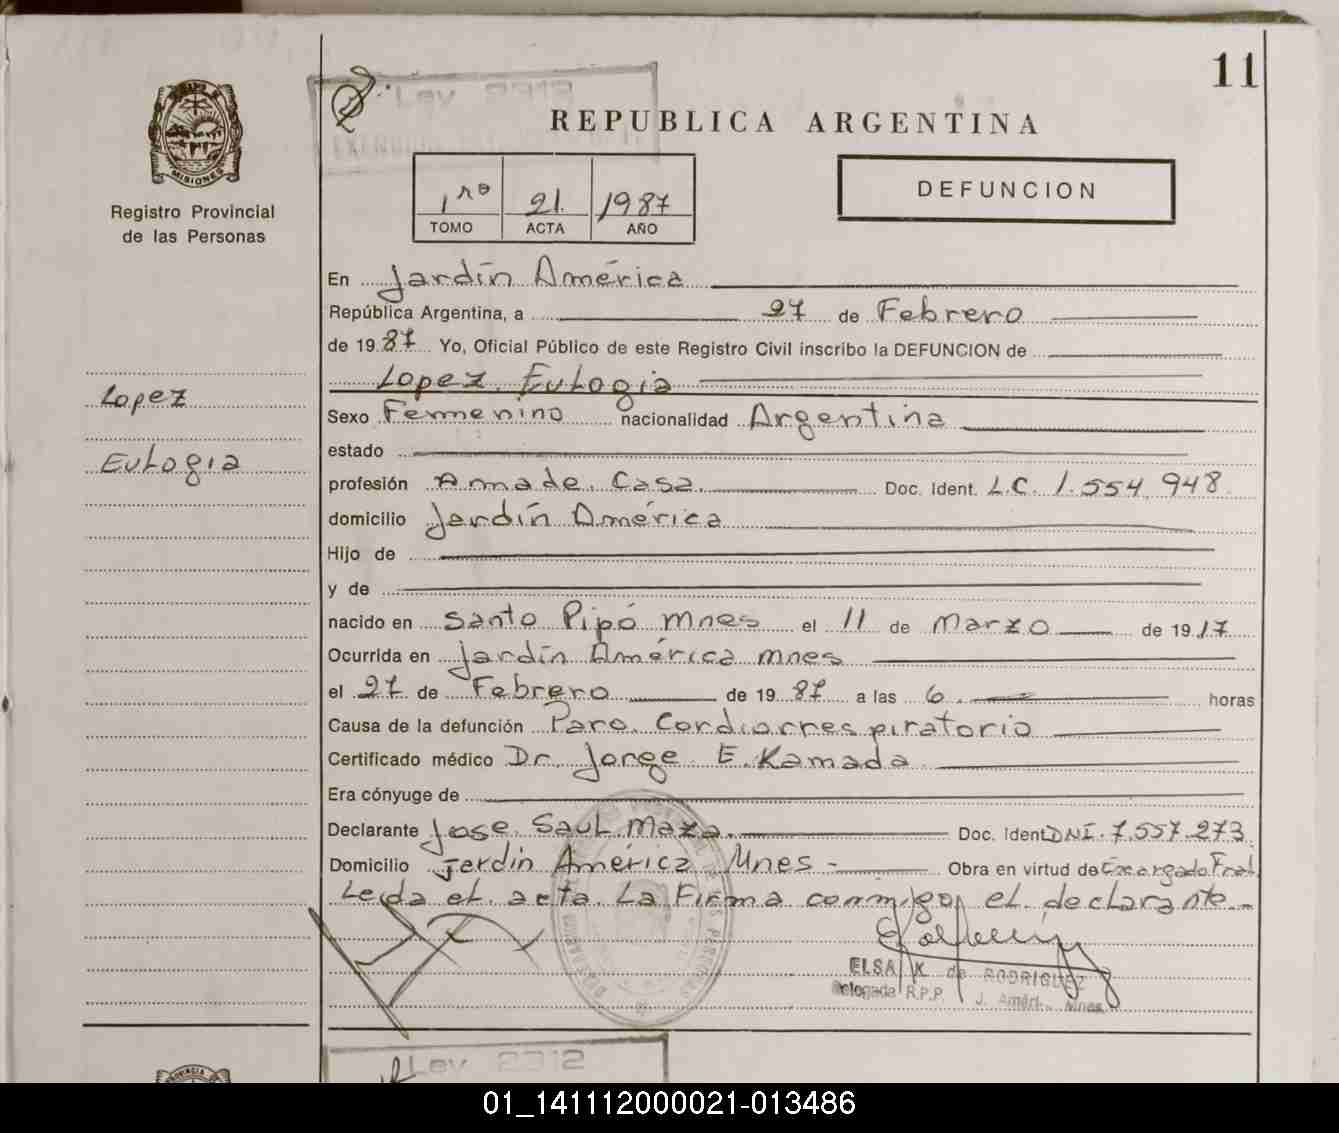 11
Ley 2312
REPUBLICA ARGENTINA
MISIONES
Registro Provincial
de las Personas
1ro 21. 1987
TOMO ACTA AÑO
DEFUNCION
En Jardín América
República Argentina, a 27 de Febrero
de 1987 Yo, Oficial Público de este Registro Civil inscribo la DEFUNCION de
Lopez Eulogia
Lopez
Eulogia
Sexo Femenino nacionalidad Argentina
estado
profesión Amade Casa. Doc. Ident. L.C. 1.554.948
domicilio Jardín América
Hijo de
y de
nacido en Santo Pipó Mnes el 11 de Marzo de 1917
Ocurrida en Jardín América Mnes
el 27 de Febrero de 1987 a las 6 horas
Causa de la defunción Paro Cardiorrespiratorio
Certificado médico Dr. Jorge E. Kamada
Era cónyuge de
Declarante Jose Saul Maza. Doc. Ident DNI. 7.557.273
Domicilio Jardín América Mnes - Obra en virtud de Encargado Fnal
Leida el acta La Firma conmigo el declarante -
ELSA K de RODRIGUEZ
Delegada R.P.P. J. Amér. - Mnes.
Ley 2312
01_141112000021-013486